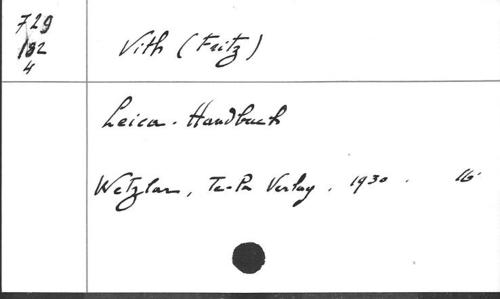 729
182
4
Vith (Fritz)
Leica-Handbuch
Wetzlar, Te-Pe Verlag. 1930. 16°